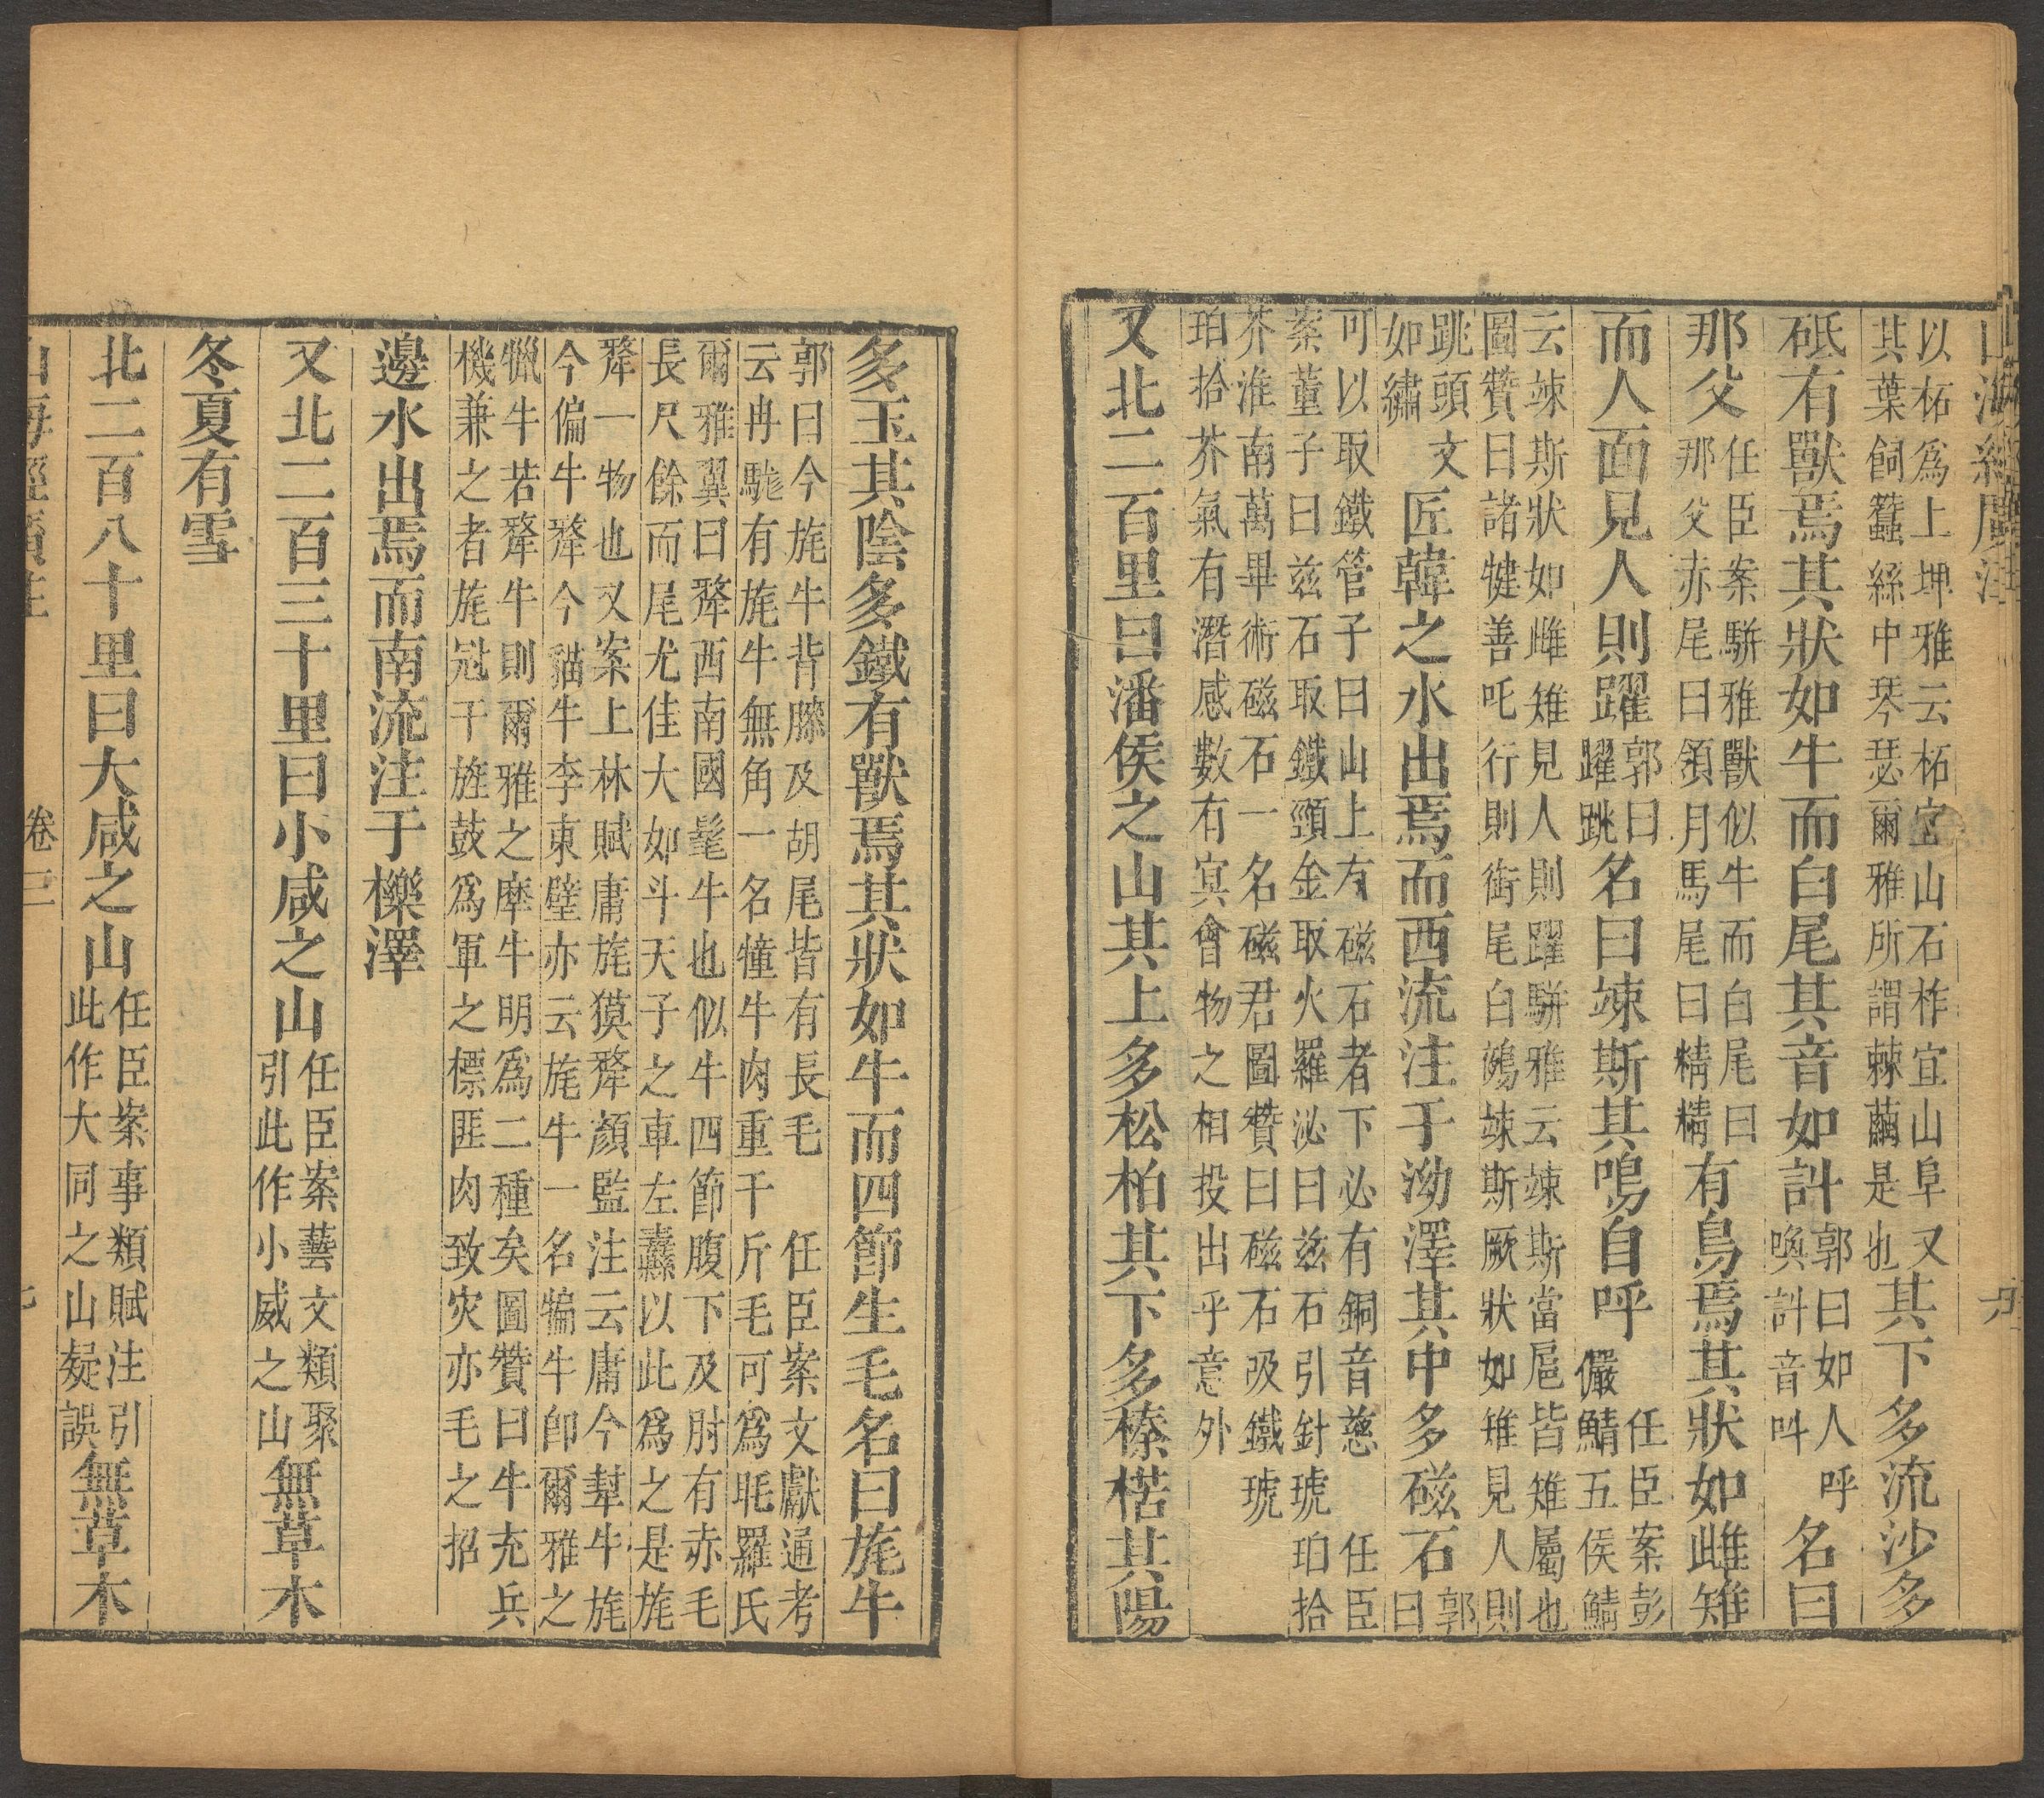 山海經廣注
以柘爲上埤雅云柘宜山石柞宜山阜又
其葉飼蠶絲中琴瑟爾雅所謂棘繭是也
其下多流沙多
砥有獸焉其狀如牛而白尾其音如訆
郭曰如人呼
喚訆音叫
名曰
那父
任臣案駢雅獸似牛而白尾曰
那父赤尾曰領月馬尾曰精精
有鳥焉其狀如雌雉
而人面見人則躍
郭曰
躍跳
名曰竦斯其鳴自呼
任臣案彭
儼鯖五侯鯖
云竦斯狀如雌雉見人則躍駢雅云竦斯當扈皆雉屬也
圖贊曰諸犍善吒行則銜尾白鵺竦斯厥狀如雉見人則
跳頭文
如繡
匠韓之水出焉而西流注于泑澤其中多磁石
郭
曰
可以取鐵管子曰山上有磁石者下必有銅音慈 任臣
案董子曰兹石取鐵頸金取火羅泌曰兹石引針琥珀拾
芥淮南萬畢術磁石一名磁君圖贊曰磁石吸鐵琥
珀拾芥氣有潛感數有冥會物之相投出乎意外
又北二百里曰潘侯之山其上多松柏其下多榛楛其陽
多玉其陰多鐵有獸焉其狀如牛而四節生毛名曰旄牛
郭曰今旄牛背膝及胡尾皆有長毛 任臣案文獻通考
云冉駹有旄牛無角一名犝牛肉重千斤毛可爲毦羅氏
爾雅翼曰犛西南國髦牛也似牛四節腹下及肘有赤毛
長尺餘而尾尤佳大如斗天子之車左纛以此爲之是旄
犛一物也又案上林賦庸旄獏犛顏監注云庸今犎牛旄
今偏牛犛今貓牛李東璧亦云旄牛一名犏牛卽爾雅之
犣牛若犛牛則爾雅之犘牛明爲二種矣圖贊曰牛充兵
機兼之者旄冠于旌鼓爲軍之標匪肉致災亦毛之招
邊水出焉而南流注于櫟澤
又北二百三十里曰小咸之山
任臣案藝文類聚
引此作小威之山
無草木
冬夏有雪
北二百八十里曰大咸之山
任臣案事類賦注引
此作大同之山疑誤
無草木
山海經廣注 卷三 七